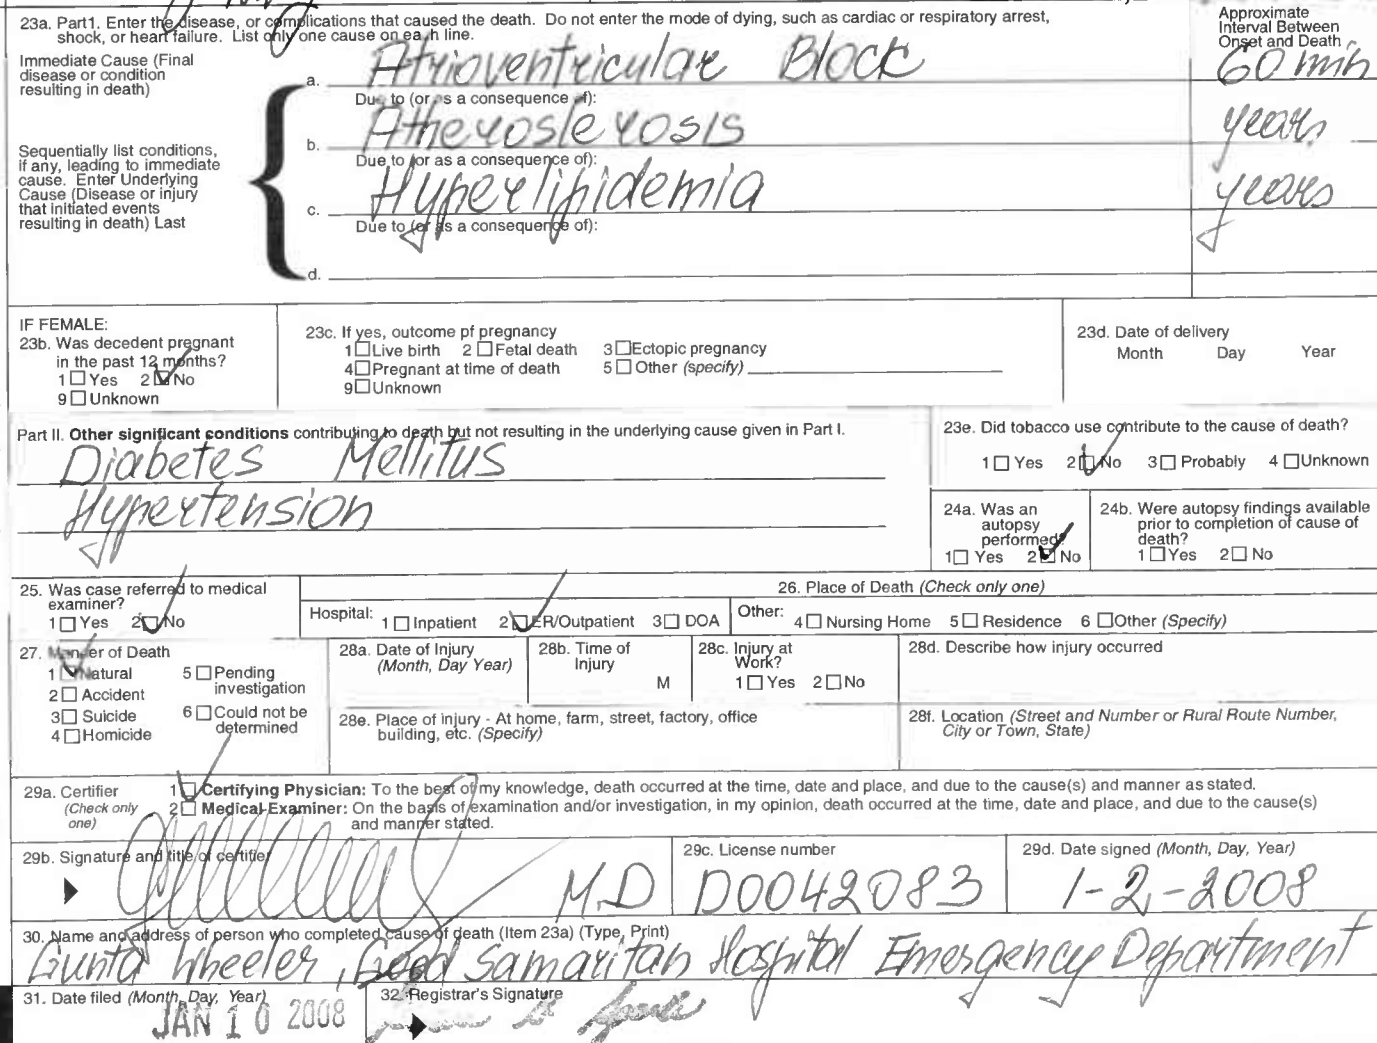 23a. Part1. Enter the disease, or complications that caused the death. Do not enter the mode of dying, such as cardiac or respiratory arrest,
shock, or heart failure. List only one cause on each line.
Approximate
Interval Between
Onset and Death
Immediate Cause (Final
disease or condition
resulting in death)
a. Atrioventricular Block 60 min
Due to (or as a consequence of):
b. Atheroslerosis years
Due to (or as a consequence of):
Sequentially list conditions,
if any, leading to immediate
cause. Enter Underlying
Cause (Disease or injury
that initiated events
resulting in death) Last
c. Hyperlipidemia years
Due to (or as a consequence of):
d.
IF FEMALE:
23b. Was decedent pregnant
in the past 12 months?
1 Yes 2 No
9 Unknown
23c. If yes, outcome pf pregnancy
1 Live birth 2 Fetal death 3 Ectopic pregnancy
4 Pregnant at time of death 5 Other (specify)
9 Unknown
23d. Date of delivery
Month Day Year
Part II. Other significant conditions contributing to death but not resulting in the underlying cause given in Part I.
Diabetes Mellitus
Hypertension
23e. Did tobacco use contribute to the cause of death?
1 Yes 2 No 3 Probably 4 Unknown
24a. Was an
autopsy
performed?
1 Yes 2 No
24b. Were autopsy findings available
prior to completion of cause of
death?
1 Yes 2 No
25. Was case referred to medical
examiner?
1 Yes 2 No
26. Place of Death (Check only one)
Hospital: 1 Inpatient 2 ER/Outpatient 3 DOA
Other: 4 Nursing Home 5 Residence 6 Other (Specify)
27. Manner of Death
1 Natural
2 Accident
3 Suicide
4 Homicide
5 Pending
investigation
6 Could not be
determined
28a. Date of Injury
(Month, Day Year)
28b. Time of
Injury
M
28c. Injury at
Work?
1 Yes 2 No
28d. Describe how injury occurred
28e. Place of injury - At home, farm, street, factory, office
building, etc. (Specify)
28f. Location (Street and Number or Rural Route Number,
City or Town, State)
29a. Certifier
(Check only
one)
1 Certifying Physician: To the best of my knowledge, death occurred at the time, date and place, and due to the cause(s) and manner as stated.
2 Medical Examiner: On the basis of examination and/or investigation, in my opinion, death occurred at the time, date and place, and due to the cause(s)
and manner stated.
29b. Signature and title of certifier
M.D
29c. License number
D0042083
29d. Date signed (Month, Day, Year)
1-2-2008
30. Name and address of person who completed cause of death (Item 23a) (Type, Print)
Gunta Wheeler, Good Samaritan Hospital Emergency Department
31. Date filed (Month, Day, Year)
JAN 10 2008
32. Registrar's Signature